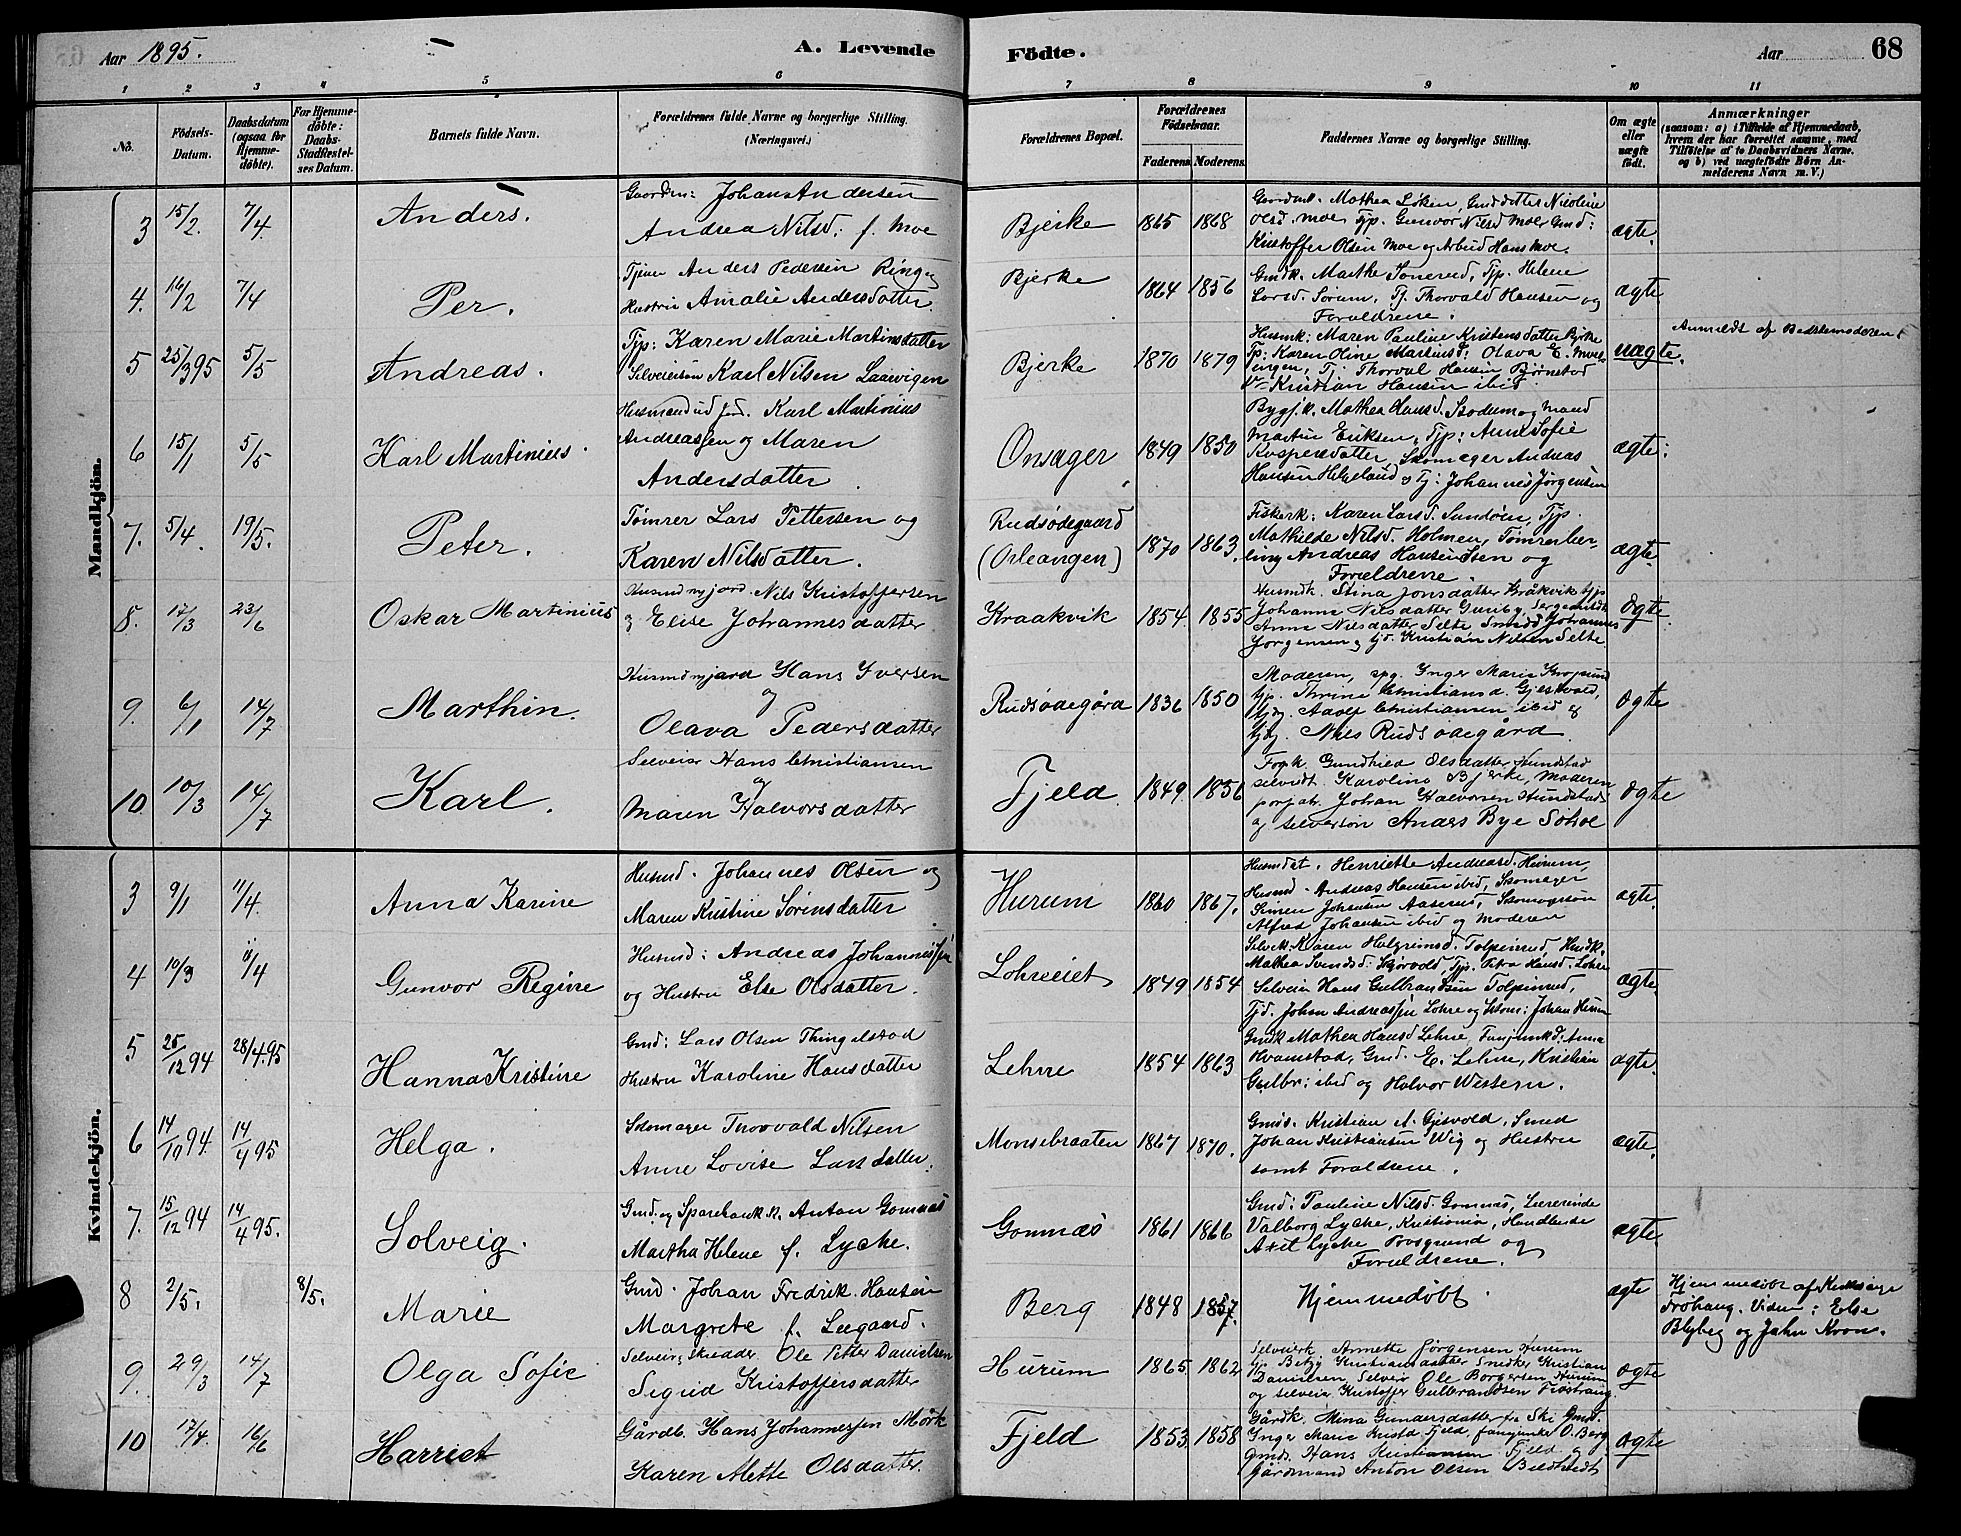 Aar 1895.
A. Levende
Födte.
Aar
68
1 2 3 4 5 6 7 8 9 10 11
No.
Födsels-Datum.
Daabsdatum (ogsaa for Hjemme-döbte).
For Hjemme-döbte: Daabs-Stadfæstel-ses Datum.
Barnets fulde Navn.
Forældrenes fulde Navne og borgerlige Stilling. (Næringsvei.)
Forældrenes Bopæl.
Forældrenes Födselsaar.
Faderens. Moderens.
Faddernes Navne og borgerlige Stilling.
Om ægte eller uægte födt.
Anmærkninger
(saasom: a) i Tilfælde af Hjemmedaab,
hvem der har forrettet samme, med
Tilföielse af to Daabsvidners Navne,
og b) ved uægtefödte Börn An-
melderens Navn m. V.)
Mandkjön.
3 15/2. 7/4. Anders.
Johans Andersen
Andrea Nilsd. f. Moe
Bjerke 1865 1868
Mathea Løken, Nicoline
Olsd. Moe, Tjp. Gunvor Nilsd Moe, Gmd:
Kristoffer Olsen Moe og Hans Moe.
ægte.
4. 16/2 7/4 Per.
Tjener Anders Pedersen Ring og
Hustru Amalie Andersdatter.
Bjerke 1864 1856
Gmdk. Marthe Tjp. Helene
Larsd. Sørum, Tj. Thorvald Hansen og
Forældrene.
ægte
5 25/3 95 5/5 Andreas.
Tjp: Karen Marie Martinsdatter
Selveiersøn Karl Nilsen Laarvigen
Bjerke 1870 1879
Husmk: Maren Pauline Kristensdatter Bjrke
Tp: Karen Oline Martinsd: Olava E. Moes-
engen, Tj. Thorval Hansen Bjørnstad
Kristian Hansen ibid
uægte.
Anmeldt af Bedstemoderen
6 15/1 5/5 Karl Martinius.
Husmand ud jord. Karl Martinius
Andreassen og Maren
Andersdatter
Onsager 1849 1850
Bygsk. Mathea Hansd. og Mand
Martin Eriksen, Tjp: Anne Sofie
Kaspersdatter, Skomager Andreas
Hansen Helgeland og Tj: Johannes Jörgensen
ægte:
7. 5/4. 19/5. Peter.
Tømrer Lars Pettersen og
Karen Nilsdatter.
Rudsødegaard
(Orleangen)
1870 1863.
Fiskerk: Karen Larsd. Sundøen, Tjp.
Mathilde Nilsd. Holmen, Tømrerlær-
ling Andreas Hansen og
Forældrene.
ægte.
8. 17/3 23/6 Oskar Martinius
Husmd mjord. Nils Kristoffersen
og Elise Johannesdatter
Kraakvik 1854 1855
Husmdk. Stina Jonsdatter Kråkvik tjp
Johanne Nilsdatter
Anne Nilsdatter Selte Smed Johannes
Jörgensen og tj. Kristian Nilsen Selte
ægte.
9. 6/1 14/7 Marthin.
Husmd mjord Hans Iversen
og
Olava Pedersdatter
Rudsødegård 1836 1850
Moderen, Inger Marie
tjp. Thrine Christiansd. Gjesvold,
Adolf Christiansen ibid og
Nils Rudsødegård.
ægte
10 10/3 14/7 Karl.
Selveier Hans Christiansen
og
Maren Halvorsdatter
Fjeld 1849 1856
Gundhild Olsdatter Hundstad
Karoline Bjerke, Moderen
Johan Halvorsen Hundstad
og selveiersøn Anders Bye Sohol
ægte
Kvindekjön.
3 9/1 11/4. Anna Karine
Husmd. Johannes Olsen og
Maren Kristine Sörensdatter
Hurum 1860 1867.
Husmdat. Henriette Andreasd. Hurum,
Husmd. Andreas Hansen ibid, Skomager
Simen Johansen Skomagersøn
Alfred Johansen ibid og Moderen
ægte.
4 10/3 11/4 Gunvor Regine
Husmd: Andreas Johannessen
og Hustru Else Olsdatter.
Lohreeiet 1849 1854
Karen Halgrimsd. Tolpinrud, Husdk.
Mathea Svendsd. Tjp. Petra Hansd. Lohre
Selveier Hans Gulbrandsen Tolpinrud,
Tjd. Johan Andreassen Lohre og Johan Hurum
ægte.
5 25/12 94 28/4.95 Hanna Kristine
Gmd: Lars Olsen Thingelstad
Hustru Karoline Hansdatter
Lehne 1854 1863
Gmdk Mathea Hansd Lehne, Anna
Hvamstad, Gmd. E. Lehne, Kristian
Gulbr: ibid og Halvor Western.
ægte.
6 14/10 94. 14/4 95 Helga.
Skomager Thorvald Nilsen
Anne Lovise Larsdatter.
Monsebraaten 1867 1870.
Gmd. Kristian A. Gjesvold, Smed
Johan Kristiansen Wig og Hustru
samt Forældrene.
ægte.
7. 15/12 94 14/4 95. Solveig.
Gmd. og Sparebankk. Anton Gomnæs
Martha Helene f. Lyche.
Gomnæs 1861 1866
Gmd: Pauline Nilsd. Gomnæs, Lærerinde
Valborg Lyche, Kristiania, Handlende
Axel Lyche Porsgrund og
Forældrene.
ægte.
8 2/5. 8/5. Marie
Gmd. Johan Fredrik Hansen
Margrete f. Leegaard.
Berg 1848 1857.
Hjemmedöbt.
ægte
Hjemmedöbt af
Fröhaug. Vidn: Else
Blyberg og John Kron.
9. 29/3 14/7 Olga Sofie
Selveier, skrædder Ole Petter Danielsen
Sigrid Kristoffersdatter
Hurum 1865. 1862
Selveierk Annette Jørgensen Hurum
tjp. Betzy Kristiansdatter Snedker Kristian
Danielsen, Selveier Ole Borgersen Hurum
og selveier Kristoffer Gulbrandsen
ægte
10 17/4. 16/6 Harriet
Gårdb. Hans Johannessen Mörk
Karen Alette Olsdatter.
Fjeld 1853 1858
Gårdk. Mina Gundersdatter fra Ski Gmd.
Inger Marie Kristd Fjeld, O. Berg
Gmd. Hans Kristiansen Fjeld og
Gårdmand Anton Olsen
ægte